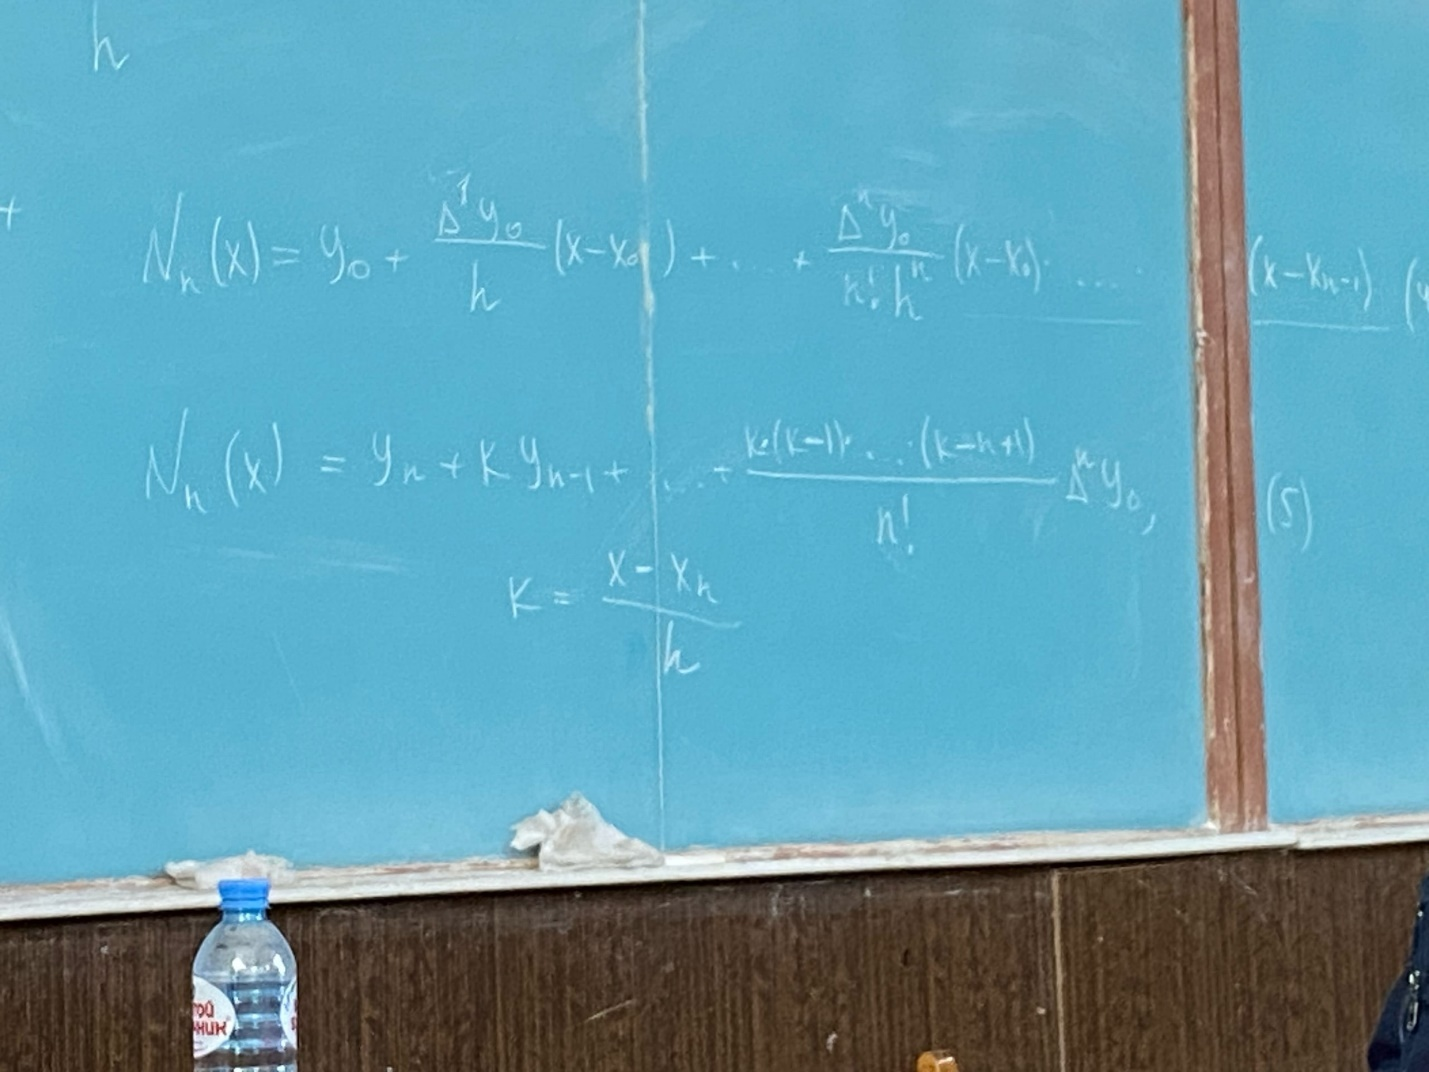 h
+
Nₙ(x) = y₀ + Δ¹y₀/h (x-x₀) + .... + Δⁿy₀/(n!·hⁿ) (x-x₀)· .... (x-xₙ₋₁) (
Nₙ(x) = yₙ + k yₙ₋₁ + .... + k·(k-1)· ... ·(k-n+1)/n! Δⁿy₀, (5)
k = (x - xₙ)/h
той
ник